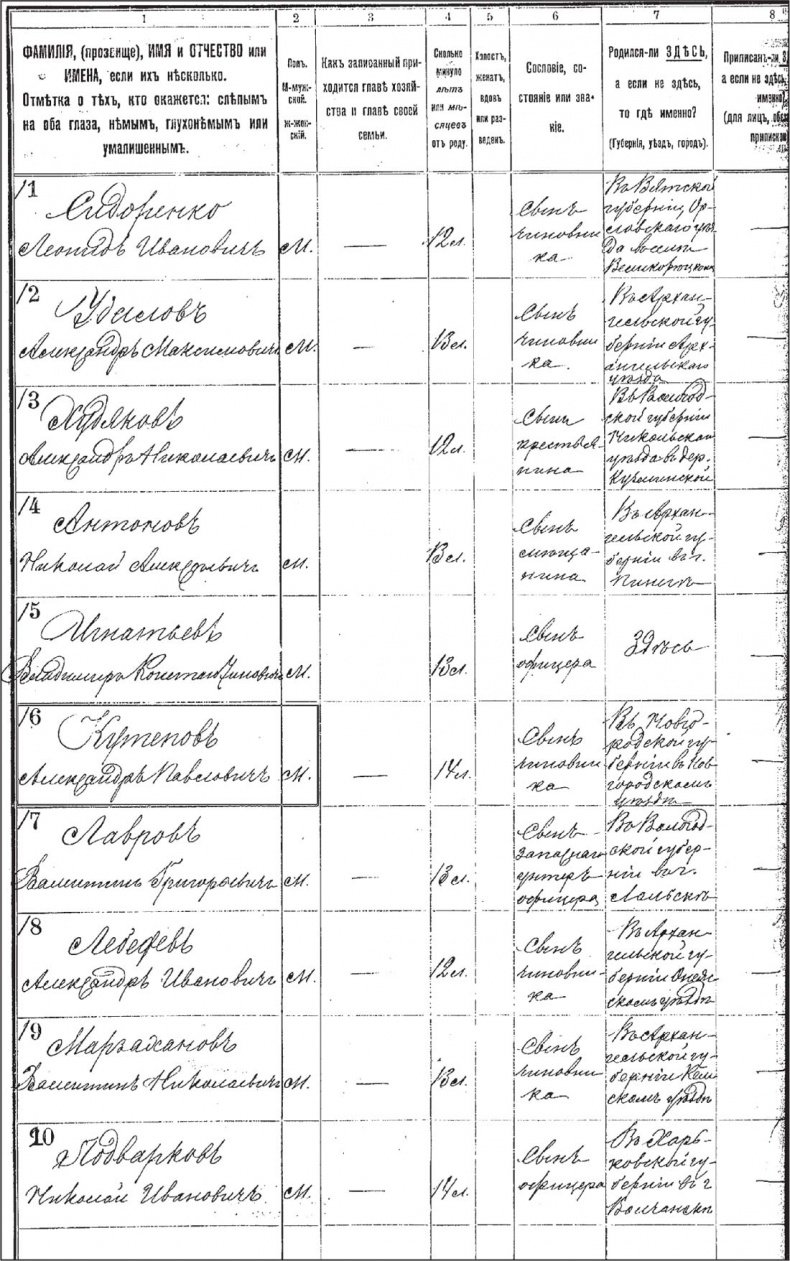 1
2
3
4
5
6
7
8
ФАМИЛІЯ, (прозвище), ИМЯ и ОТЧЕСТВО или
ИМЕНА, если ихъ нѣсколько.
Отмѣтка о тѣхъ, кто окажется: слѣпымъ
на оба глаза, нѣмымъ, глухонѣмымъ или
умалишеннымъ.
Полъ.
М-муж-
ской.
ж-жен-
скій.
Какъ записанный при-
ходится главѣ хозяй-
ства и главѣ своей
семьи.
Сколько
минуло
лѣтъ
или мѣ-
сяцевъ
отъ роду.
Холостъ,
женатъ,
вдовъ
или раз-
веденъ.
Сословіе, со-
стояніе или зва-
ніе.
Родился-ли ЗДѢСЬ,
а если не здѣсь,
то гдѣ именно?
(Губернія, уѣздъ, городъ).
Приписанъ-ли
а если не здѣсь
именно
(для лицъ,
приписко
1
Сидоренко
Леонидъ Ивановичъ
М.
—
12 л.
Сынъ
чиновни
ка
Въ Вятской
губерніи, Ор-
ловскаго уѣз
да въ селѣ
—
2
Александръ Максимовичъ
М.
—
13 л.
Сынъ
чиновни
ка.
Въ Архан-
гельской гу-
берніи Арх-
ангельскаго
уѣзда
—
3
Худяковъ
Александръ Николаевичъ
М.
—
12 л.
Сынъ
крестья-
нина
Въ Вологод-
ской губерніи
Никольскаго
уѣзда въ дер.
—
4
Антоновъ
Николай
М.
—
13 л.
Сынъ
мѣща-
нина
Въ Архан-
гельской гу-
берніи въ г.
Пинегѣ
—
5
Игнатьевъ
Владимиръ Константиновичъ
М.
13 л.
Сынъ
офицера
Здѣсь
—
6
Кутеповъ
Александръ Павловичъ
М.
—
14 л.
Сынъ
чиновни
ка
Въ Новго-
родской гу-
берніи въ Нов
городскомъ
уѣздѣ
—
7
Лавровъ
Валентинъ Григорьевичъ
М.
—
13 л.
Сынъ
запаснаго
унтеръ
офицера
Въ Вологод-
ской губер-
ніи въ г.
Лальскѣ
—
8
Лебедевъ
Александръ Ивановичъ
М.
—
12 л.
Сынъ
чиновни-
ка
Въ Архан-
гельской гу-
берніи Онеж
скомъ уѣздѣ
—
9
Валентинъ Николаевичъ
М.
—
13 л.
Сынъ
чиновни
ка
Въ Архан-
гельской гу-
берніи Кем
скомъ уѣздѣ
—
10
Подварковъ
Николай Ивановичъ
М.
—
14 л.
Сынъ
офицера
Въ Харь-
ковской гу-
берніи въ г
Волчанскѣ
—